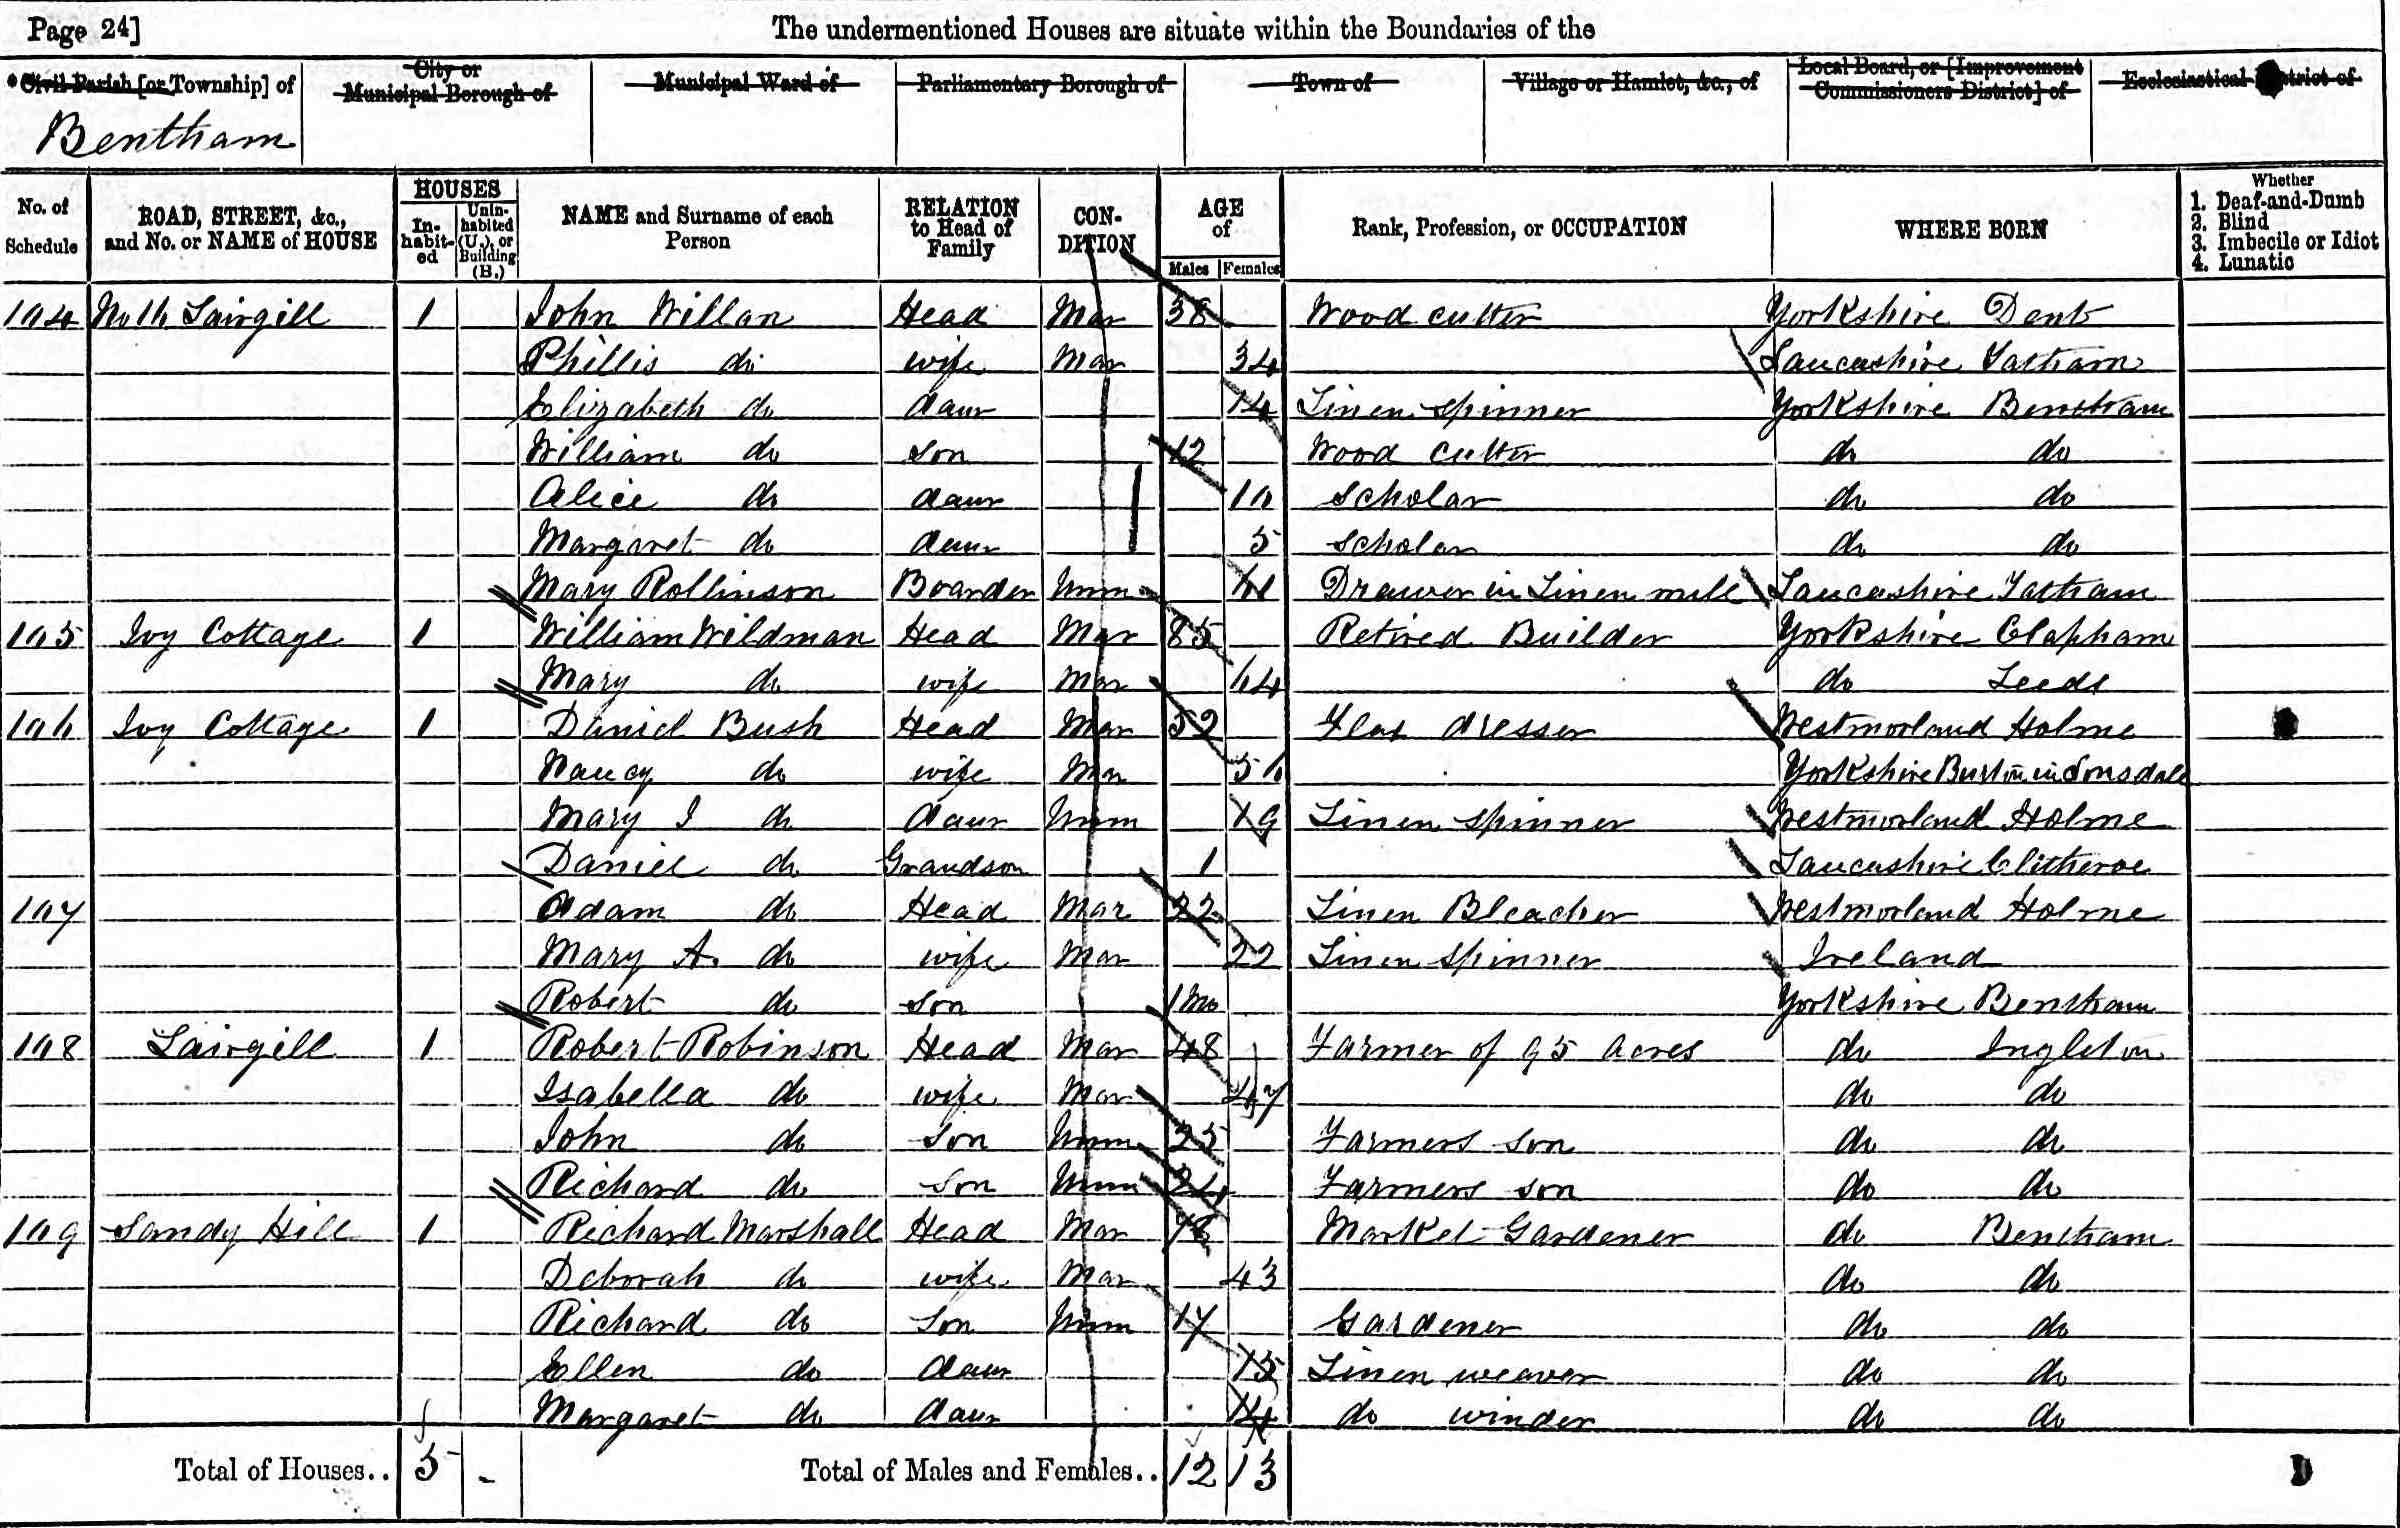 Page 24] The undermentioned Houses are situate within the Boundaries of the
Civil Parish [or Township] of City or Municipal Borough of Municipal Ward of Parliamentary Borough of Town of Village or Hamlet, &c., of Local Board, or [Improvement Commissioners District] of Ecclesiastical District of
Bentham
No. of Schedule ROAD, STREET, &c., and No. or NAME of HOUSE HOUSES Inhabited Uninhabited (U.), or Building (B.) NAME and Surname of each Person RELATION to Head of Family CONDITION AGE of Males Females Rank, Profession, or OCCUPATION WHERE BORN Whether 1. Deaf-and-Dumb 2. Blind 3. Imbecile or Idiot 4. Lunatic
104 Lairgill 1 John Willan Head Mar 38 Wood cutter Yorkshire Dent
Phillis do wife Mar 34 Lancashire Tatham
Elizabeth do daur 14 Linen spinner Yorkshire Bentham
William do son 12 Wood cutter do do
Alice do daur 10 Scholar do do
Margaret do daur 5 Scholar do do
Mary Rollinson Boarder Unm Drawer in Linen mill Lancashire Tatham
105 Ivy Cottage 1 William Wildman Head Mar 85 Retired Builder Yorkshire Clapham
Mary do wife Mar 64 do Leeds
106 Ivy Cottage 1 Daniel Bush Head Mar 52 Flax dresser Westmorland Holme
Nancy do wife Mar 56 Yorkshire Burton in Lonsdale
Mary I do daur Unm 19 Linen spinner Westmorland Holme
Daniel do Grandson 1 Lancashire Clitheroe
107 Adam do Head Mar 22 Linen Bleacher Westmorland Holme
Mary A. do wife Mar 22 Linen spinner Ireland
Robert do son 1mo Yorkshire Bentham
108 Lairgill 1 Robert Robinson Head Mar 48 Farmer of 95 Acres do Ingleton
Isabella do wife Mar 47 do do
John do son Unm 25 Farmers son do do
Richard do son Unm 24 Farmers son do do
109 Sandy Hill 1 Richard Marshall Head Mar Market Gardener do Bentham
Deborah do wife Mar 43 do do
Richard do son Unm 17 Gardener do do
Ellen do daur 15 Linen weaver do do
Margaret do daur 14 do winder do do
Total of Houses.. 5 - Total of Males and Females.. 12 13